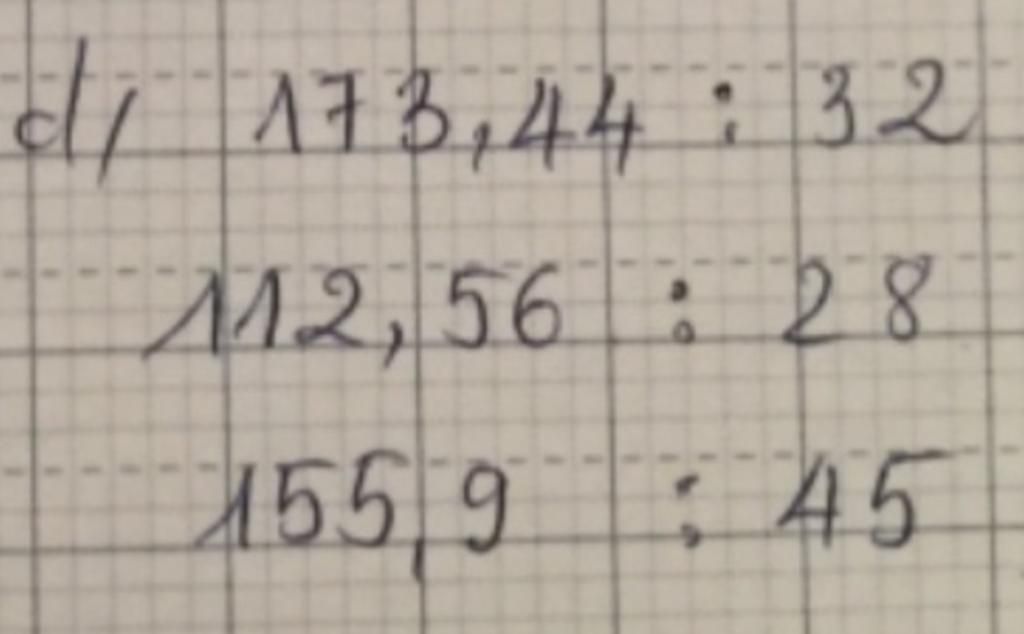 d, 173,44 : 32
112,56 : 28
155,9 : 45